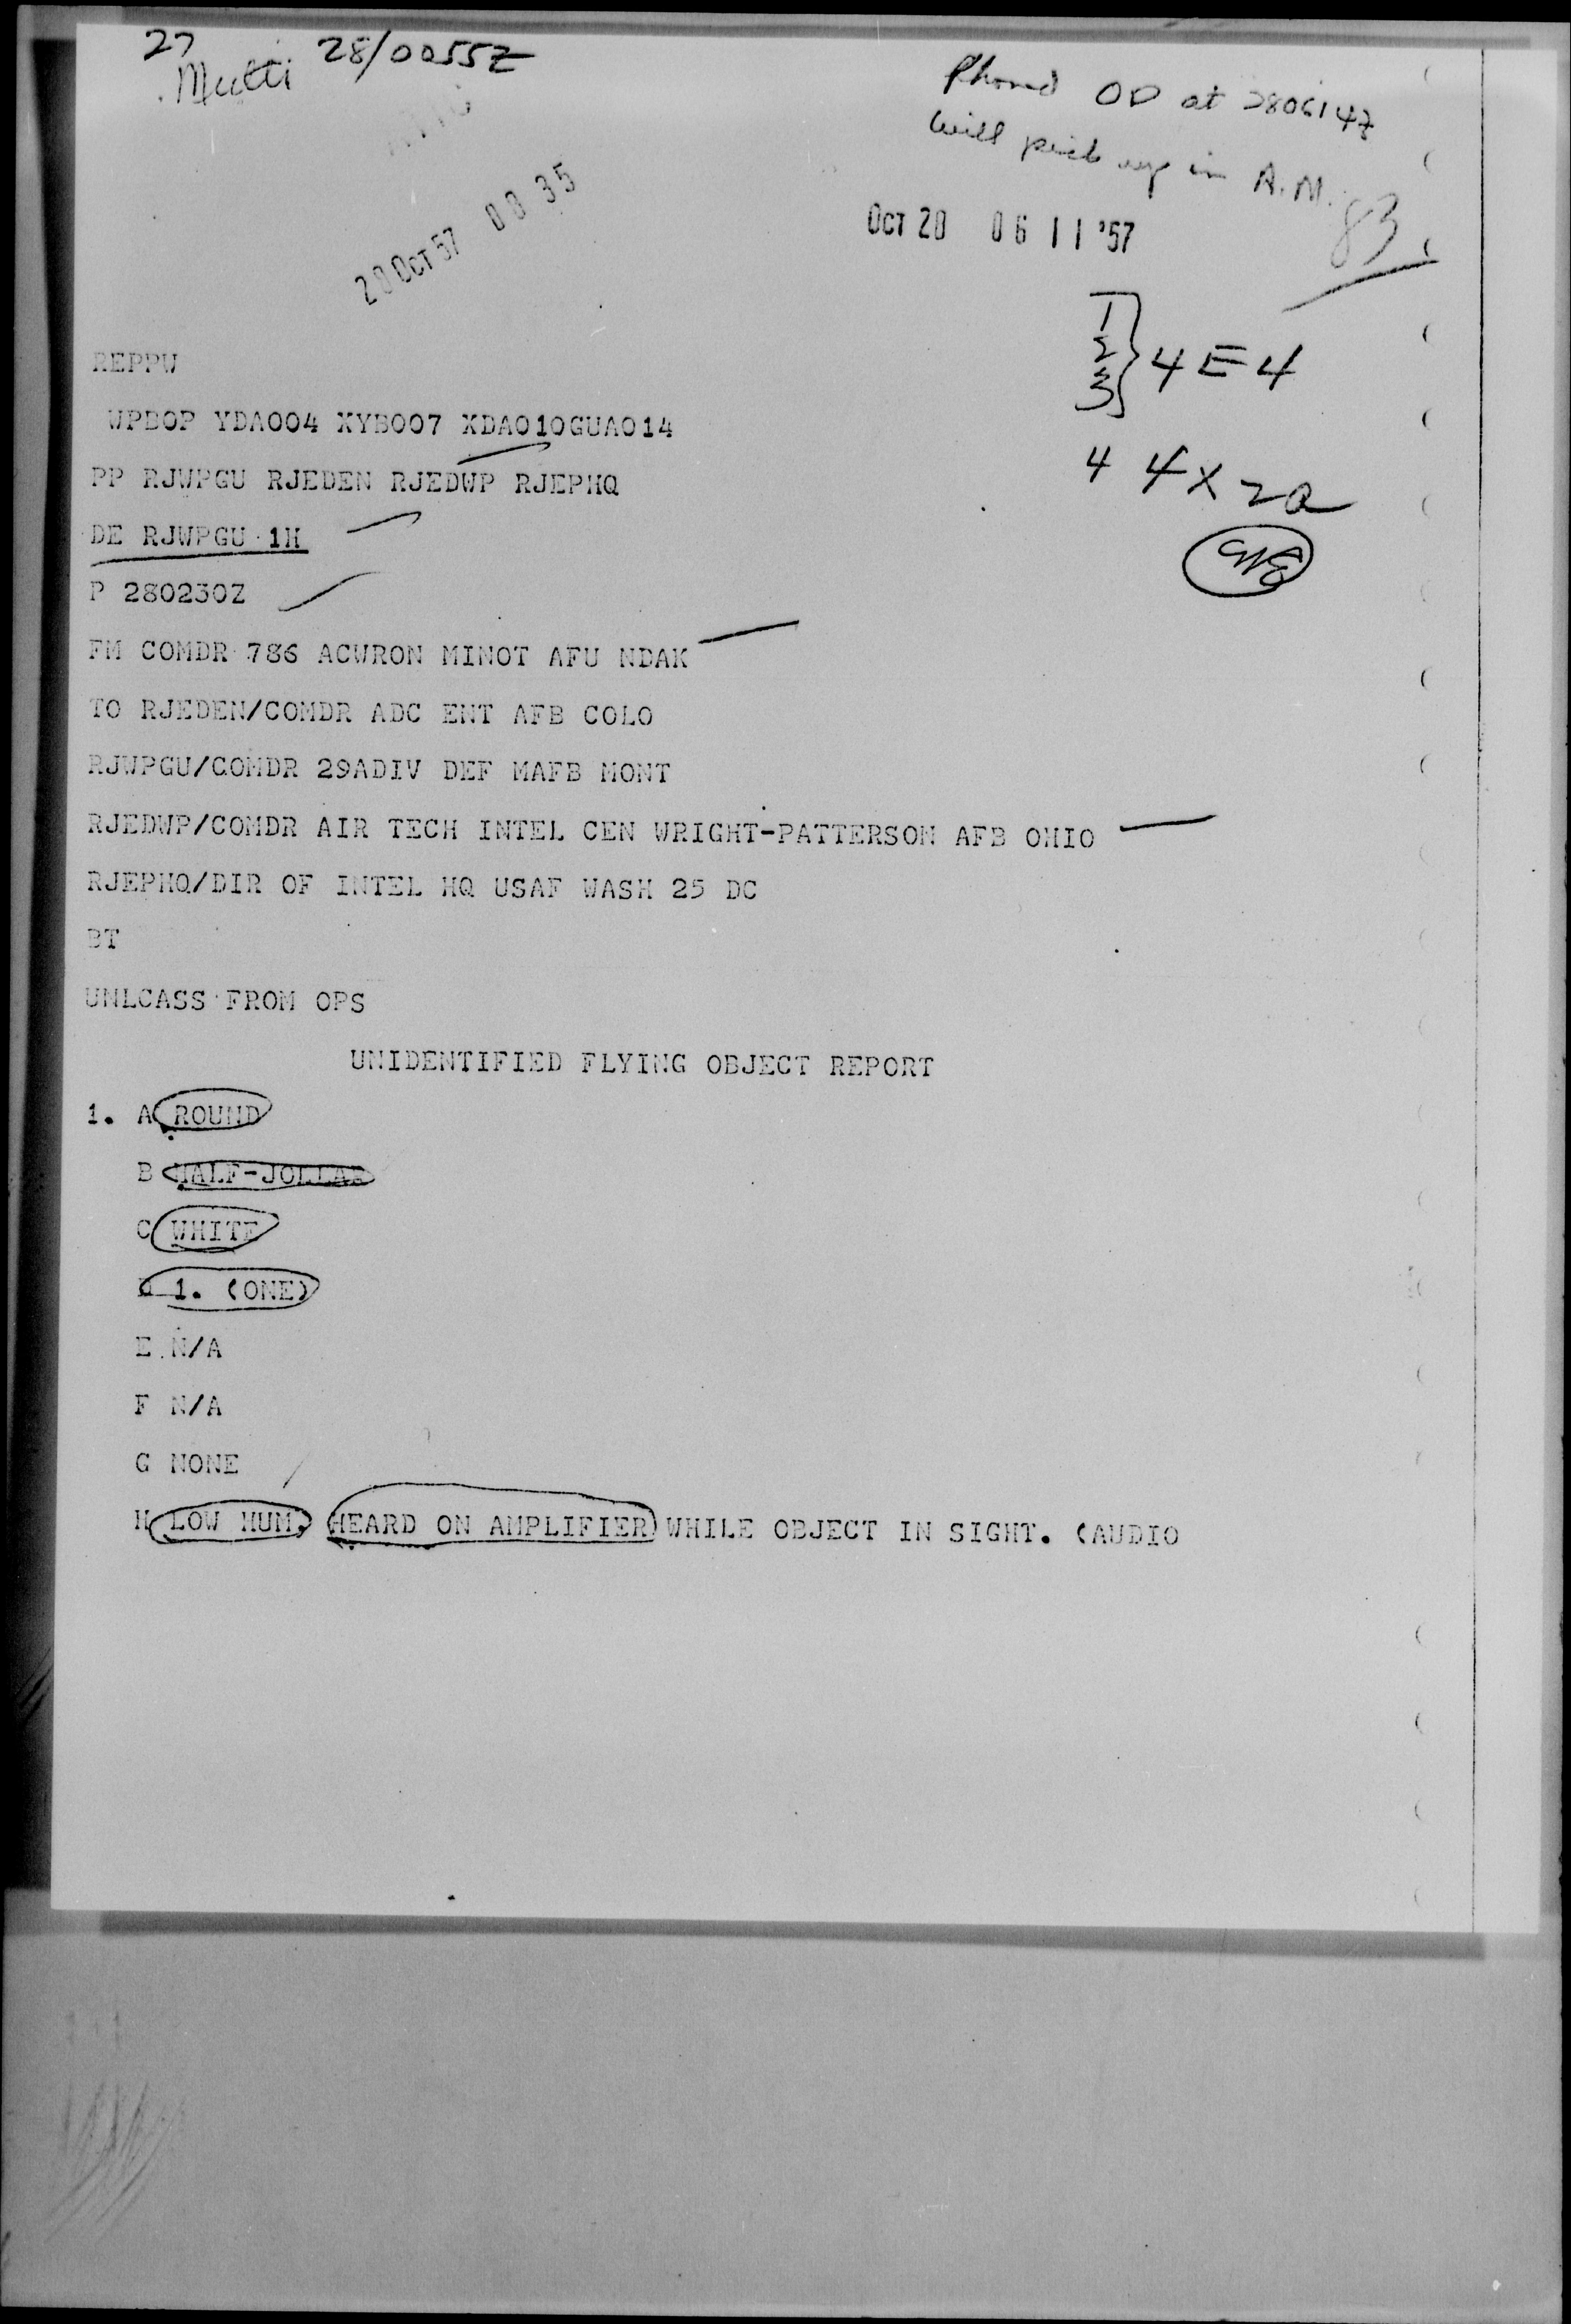 27
Multi 28/0055Z
Phoned OD at 280614Z
will pick up in A.M.
83
OCT 28 06 11 '57
1
2
3
} 4E4
4 4X2a
REPPW
WPBOP YDA004 XYB007 XDA010GUA014
PP RJWPGU RJEDEN RJEDWP RJEPHQ
DE RJWPGU 1H
P 280230Z
FM COMDR 786 ACWRON MINOT AFU NDAK
TO RJEDEN/COMDR ADC ENT AFB COLO
RJWPGU/COMDR 29ADIV DEF MAFB MONT
RJEDWP/COMDR AIR TECH INTEL CEN WRIGHT-PATTERSON AFB OHIO
RJEPHQ/DIR OF INTEL HQ USAF WASH 25 DC
BT
UNLCASS FROM OPS
UNIDENTIFIED FLYING OBJECT REPORT
1. A ROUND
B HALF-JOLLAR
C WHITE
D 1. (ONE)
E N/A
F N/A
G NONE
H LOW HUM, HEARD ON AMPLIFIER WHILE OBJECT IN SIGHT. (AUDIO